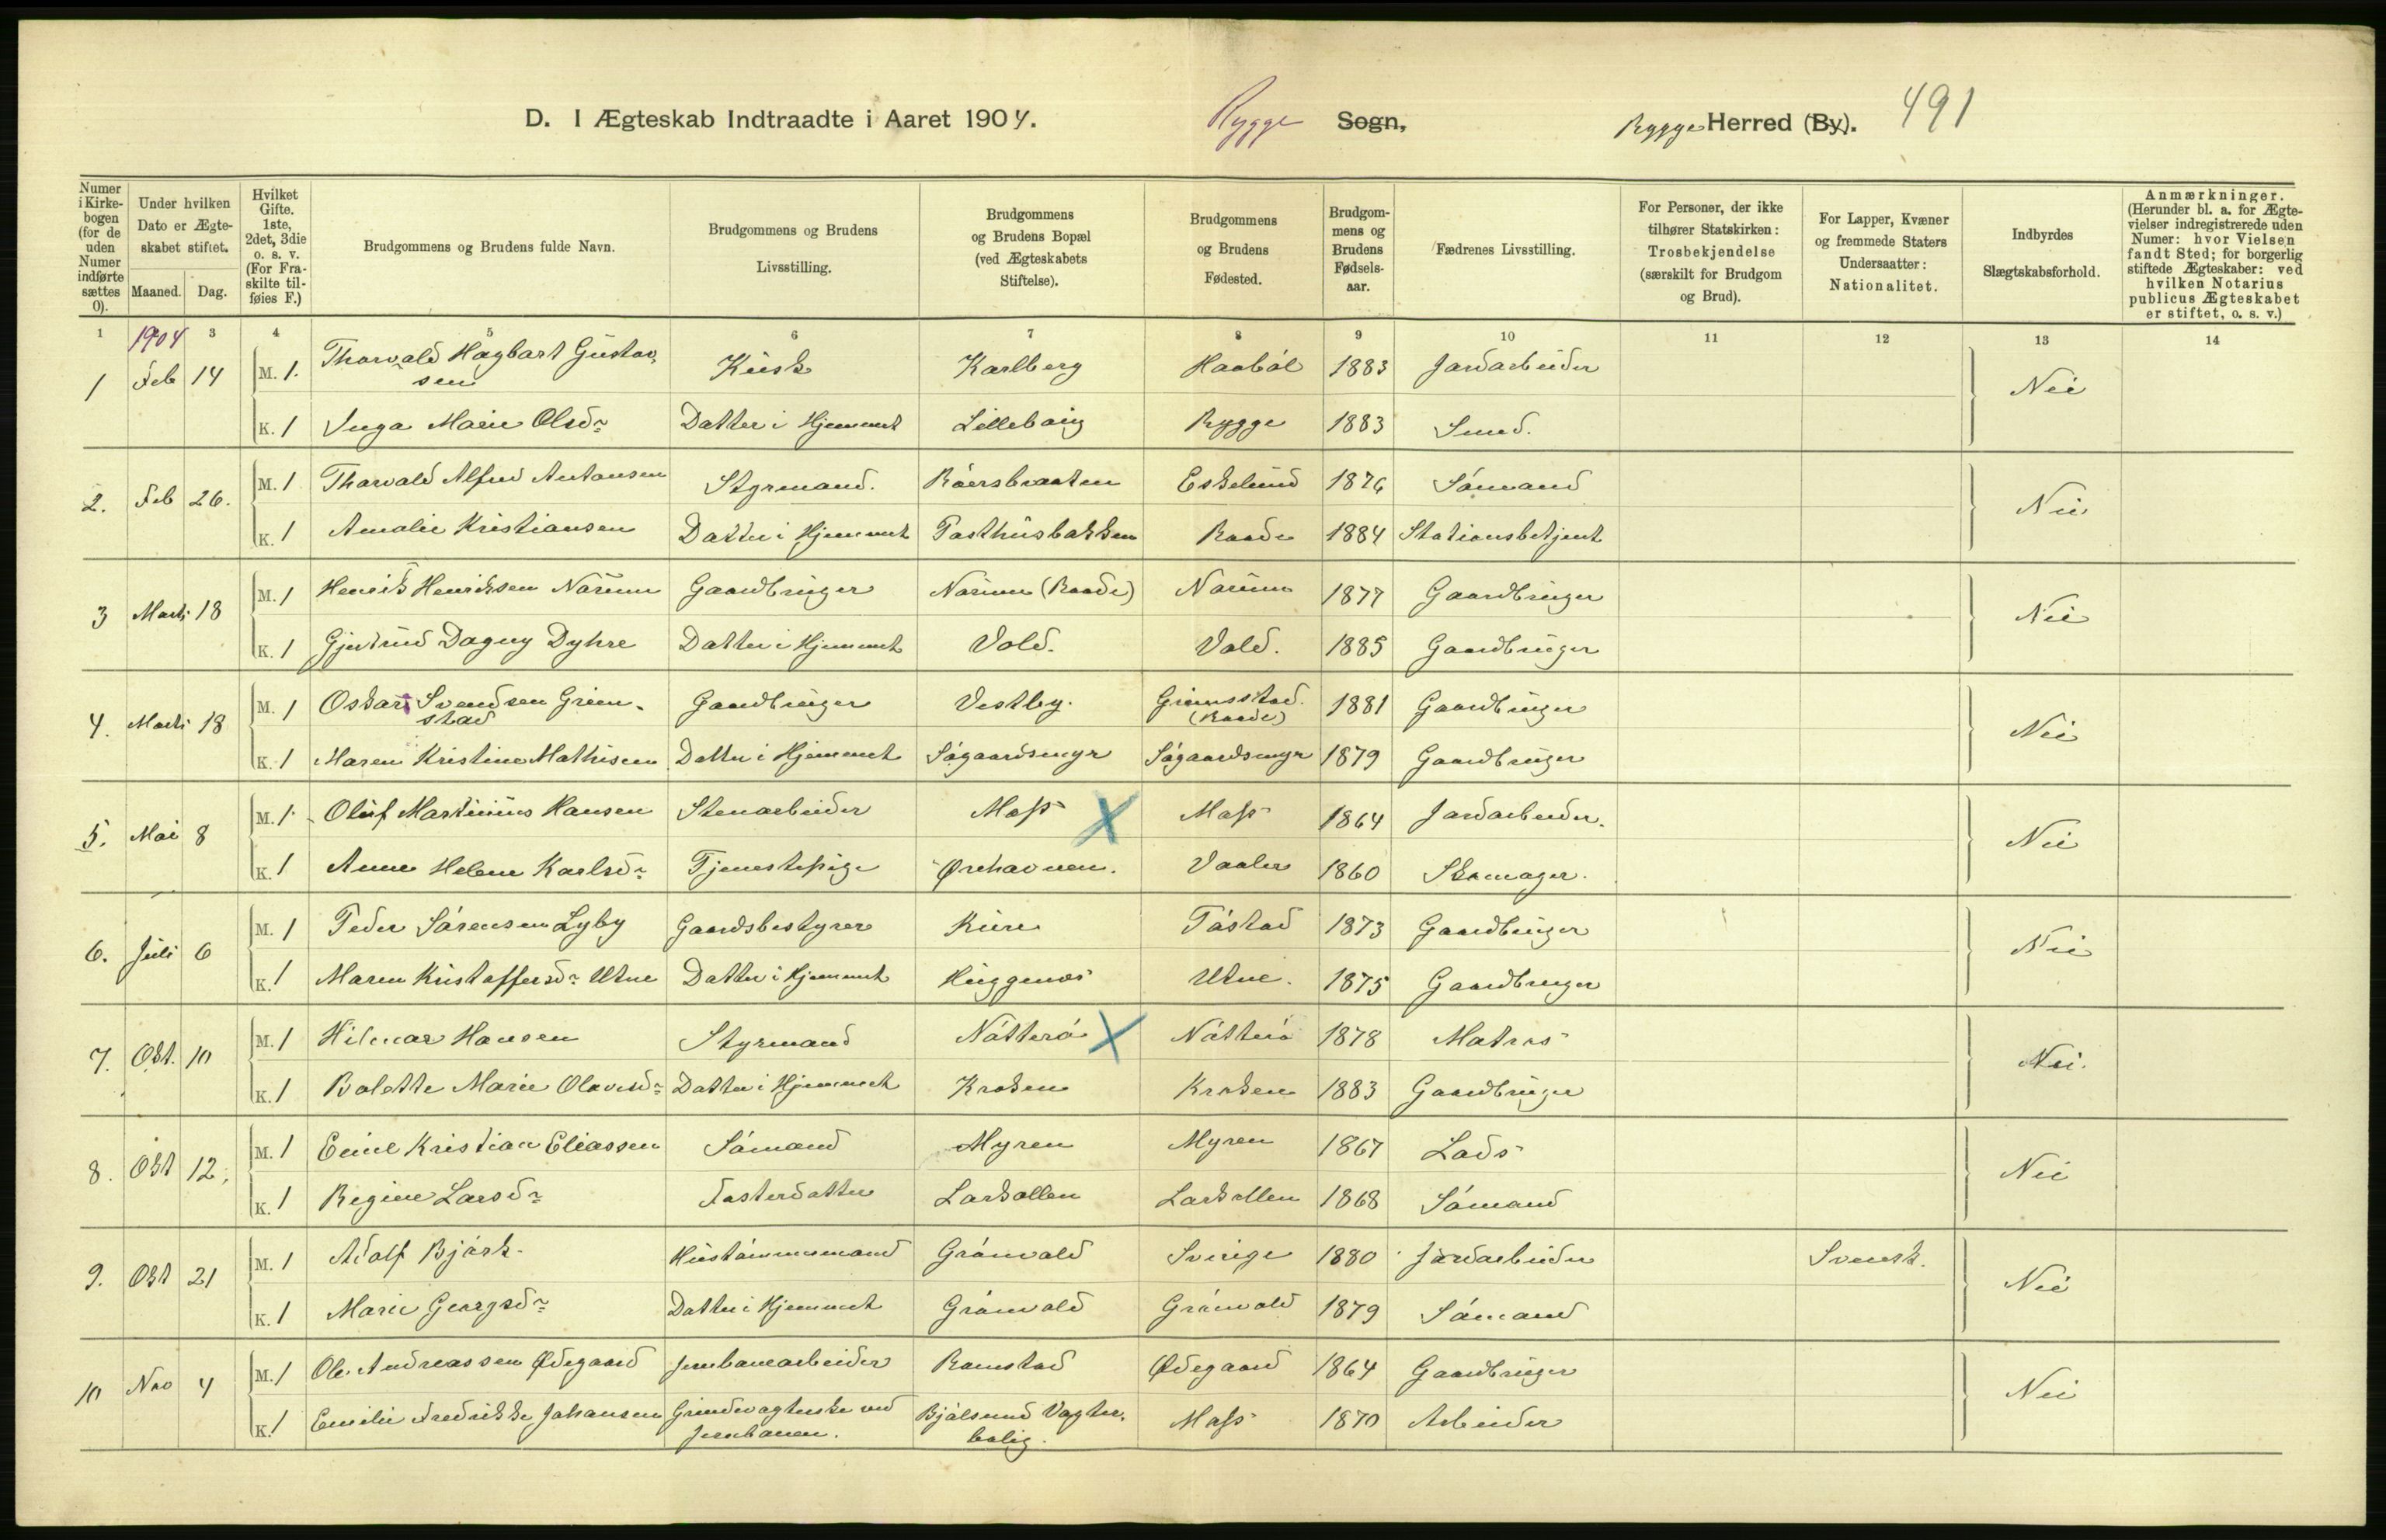 D. I Ægteskab Indtraadte i Aaret 1904. Rygge Sogn, Rygge Herred (By). 491
Numer i Kirkebogen (for de uden Numer indførte sættes 0).
Under hvilken Dato er Ægteskabet stiftet. Maaned. Dag.
Hvilket Gifte. 1ste, 2det, 3die o. s. v. (For Fraskilte tilføies F.)
Brudgommens og Brudens fulde Navn.
Brudgommens og Brudens Livsstilling.
Brudgommens og Brudens Bopæl (ved Ægteskabets Stiftelse).
Brudgommens og Brudens Fødested.
Brudgommens og Brudens Fødselsaar.
Fædrenes Livsstilling.
For Personer, der ikke tilhører Statskirken: Trosbekjendelse (særskilt for Brudgom og Brud).
For Lapper, Kvæner og fremmede Staters Undersaatter: Nationalitet.
Indbyrdes Slægtskabsforhold.
Anmærkninger. (Herunder bl. a. for Ægtevielser indregistrerede uden Numer: hvor Vielsen fandt Sted; for borgerlig stiftede Ægteskaber: ved hvilken Notarius publicus Ægteskabet er stiftet, o. s. v.)
1 1904 3 4 5 6 7 8 9 10 11 12 13 14
1 Feb 14 M. 1. Thorvald Hagbart Gustavsen Kusk Karlberg Haabøl 1883 Jordarbeider Nei
K. 1 Inga Marie Olsdr Datter i Hjemmet Lillebaug Rygge 1883 Smed.
2. Feb 26. M. 1 Thorvald Alfred Antonsen Styrmand. Roersbraaten Eskelund 1876 Sømand Nei
K. 1 Amalie Kristiansen Datter i Hjemmet Posthusbakken Raade 1884 Stationsbetjent
3 Marts 18 M. 1 Henrik Henriksen Norum Gaardbruger Norum (Raade) Norum 1877 Gaardbruger Nei
K. 1 Gjertrud Dagny Dyhre Datter i Hjemmet Vold. Vold. 1885 Gaardbruger
4. Marts 18 M. 1 Oskar Svendsen Grimstad Gaardbruger Vestby. Grimsstad. (Raade) 1881 Gaardbruger Nei
K. 1 Maren Kristine Mathisen Datter i Hjemmet Søgaardsmyr Søgaardsmyr 1879 Gaardbruger
5. Mai 8 M. 1 Oluf Martinius Hansen Stenarbeider Moss X Moss 1864 Jordarbeider. Nei
K. 1 Anne Helene Karlsdr Tjenestepige Ørehavnen. Vaaler 1860 Skomager.
6. Juli 6 M. 1 Peder Sørensen Lyby Gaardsbestyrer Kure Tøstad 1873 Gaardbruger Nei
K. 1 Maren Kristoffersdr Utne Datter i Hjemmet Huggenæs Utne. 1875 Gaardbruger
7. Okt. 10 M. 1 Hilmar Hansen Styrmand Nøtterø X Nøtterø 1878 Matros Nei.
K. 1 Bolette Marie Olavesdr Datter i Hjemmet Kroken Kroken 1883 Gaardbruger
8. Okt 12. M. 1 Emil Kristian Eliassen Sømand Myren Myren 1867 Lods Nei
K. 1 Regine Larsdr Fosterdatter Larkollen Larkollen 1868 Sømand
9. Okt 21 M. 1 Adolf Bjørk. Hustømmermand Grønvold Sverige 1880 Jordarbeider Svensk. Nei
K. 1 Marie Georgsdr Datter i Hjemmet Grønvold Grønvold 1879 Sømand
10 Nov 4 M. 1 Ole Andreassen Ødegaard Jernbanearbeider Ramstad Ødegaard 1864 Gaardbruger Nei
K. 1 Emilie Fredrikke Johansen Grindvogterske ved Jernbanen. Bjølsund Vogterbolig. Moss 1870 Arbeider